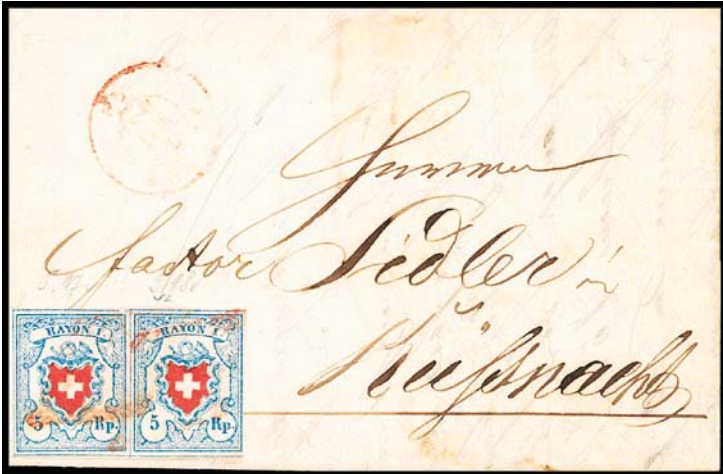 Herren
factor Sidler in
Küßnacht
RAYON I. RAYON I.
5 Rp. 5 Rp.